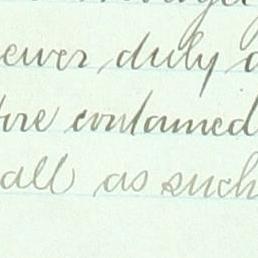 ewer duly a
fore contained
all as such